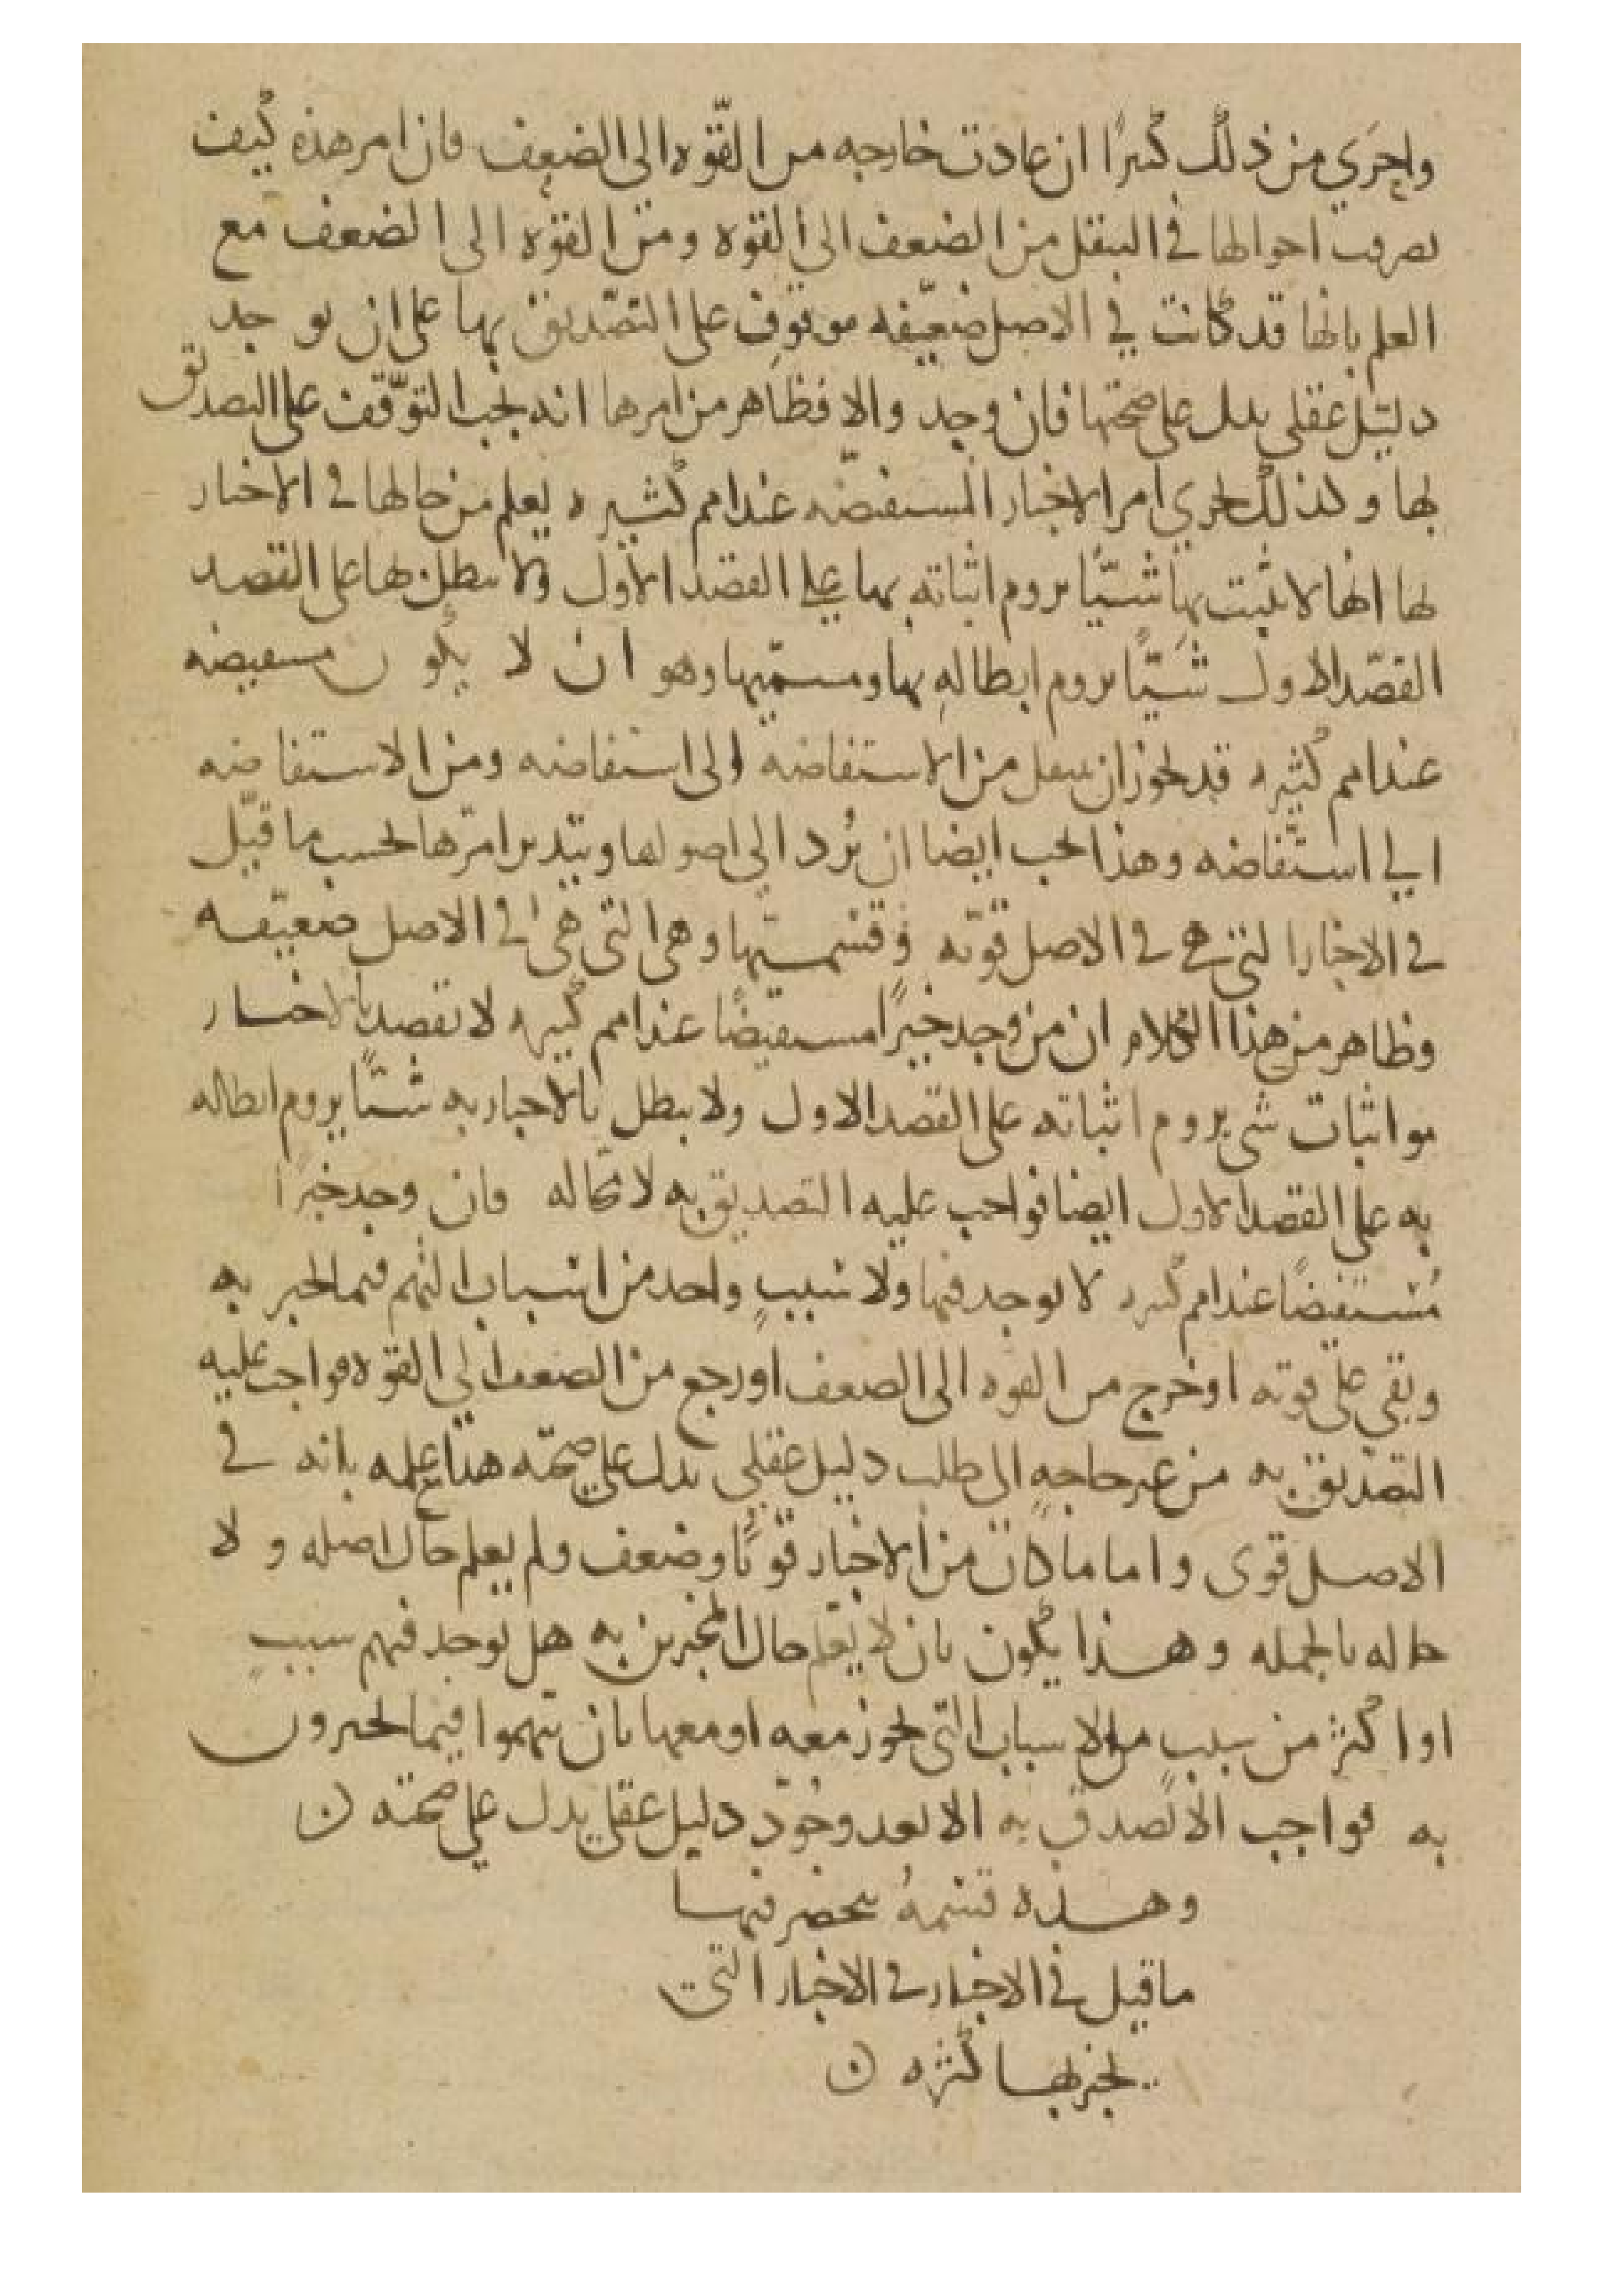 واحرى من ذلك كثيرًا ان عادت خارجه من القوّه الى الضعف فان امر هذه كيف
تصرفت احوالها في التنقل من الضعف الى القوّه ومن القوّه الى الضعف مع
العلم بانها قد كانت في الاصل ضعيّفه موقوف على التصّديق بها على ان يوجد
دليل عقلي يدل على صحتها فان وجد والا فظاهر من امرها انه يجب التوّقف على التصديق
بها وكذلك يجري امر الاخبار المستفيضّه عند امم كثيره يعلم من حالها في الاخبار
بها انها لا يثبت بها شيًا يروم اثباته بها على القصد الاول ولا يبطل بها على القصد
القصّد الاول شيًّا يروم ابطالهِ بها وهو ان لا يكون مستفيضه
عند امم كثيره قد يجوز ان ينتقل من الاستفاضه الى استفاضه ومن الاستفاضه
الي استفاضه وهذا يجب ايضا ان تُرد الي اصولها ويتدبر امرها بحسب ما قيل
في الاخبار التي هي في الاصل قويّه وقسمتها وهي التي هي في الاصل ضعيّفه
وظاهر من هذا الكلام ان من وجد خبرًا مستفيضًا عند امم كثيره لا تقصد بالاخبار
بو اثبات شي يروم اثباته على القصد الاول ولا يبطل بالاخبار به شيًّا يروم ابطاله
به على القصد الاول ايضا فواجب عليه التصديق به لا محاله فان وجد خبرًا
مُستفيضًا عند امم كثيره لا يوجد فيها ولا سببٍ واحد من اسباب التهم فيما يخبر به
وبقي على قوته او خرج من القوه الى الضعف او رجع من الضعف الي القوه فواجب عليه
التصّديق به من غير حاجهٍ الى طلب دليل عقلي يدل على صحته هذا مع علمه بانه في
الاصل قوى واما ما كان من الاخبار قويًا وضعف ولم يعلم حال اصله ولا
حاله بالجمله وهذا يكون بان لا يعلم حال المخبرين به هل يوجد فيهم سببٍ
او اكثر من سببٍ من الاسباب التي يجوز معه او معها بان يتهموا فيما يخبرون
به فواجب الا تصدق به الا بعد وجود دليل عقلي يدل على صحته ن
وهذه قسمهُ ينحصر فيها
ما قيل في الاخبار في الاخبار التي
يخبر بها كثره ن